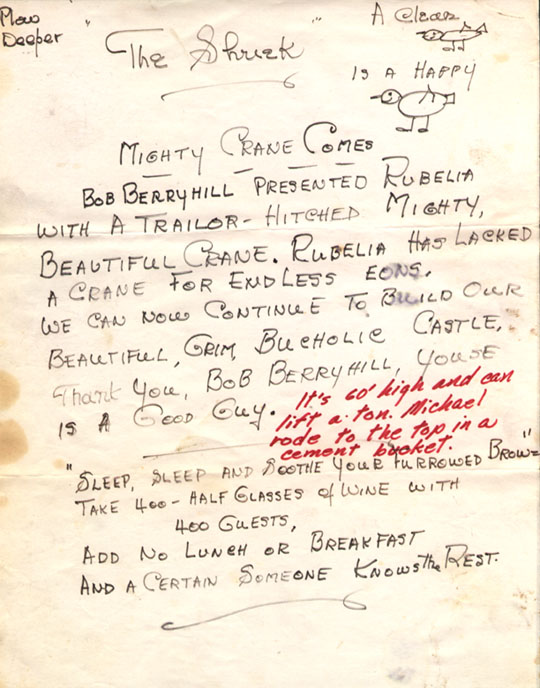 "Plow
Deeper"
"The Shriek"
A Clean
is a Happy
Mighty Crane Comes
Bob Berryhill presented Rubelia
with a trailor-hitched mighty,
beautiful crane. Rubelia has lacked
a crane for endless eons.
We can now continue to build our
beautiful, grim, bucholic castle.
Thank you, Bob Berryhill, youse
is a good guy.
It's 60' high and can
lift a ton. Michael
rode to the top in a
cement bucket.
"Sleep, sleep and soothe your furrowed brow"=
Take 400-half glasses of wine with
400 guests,
Add no lunch or breakfast
And a certain someone knows the rest.